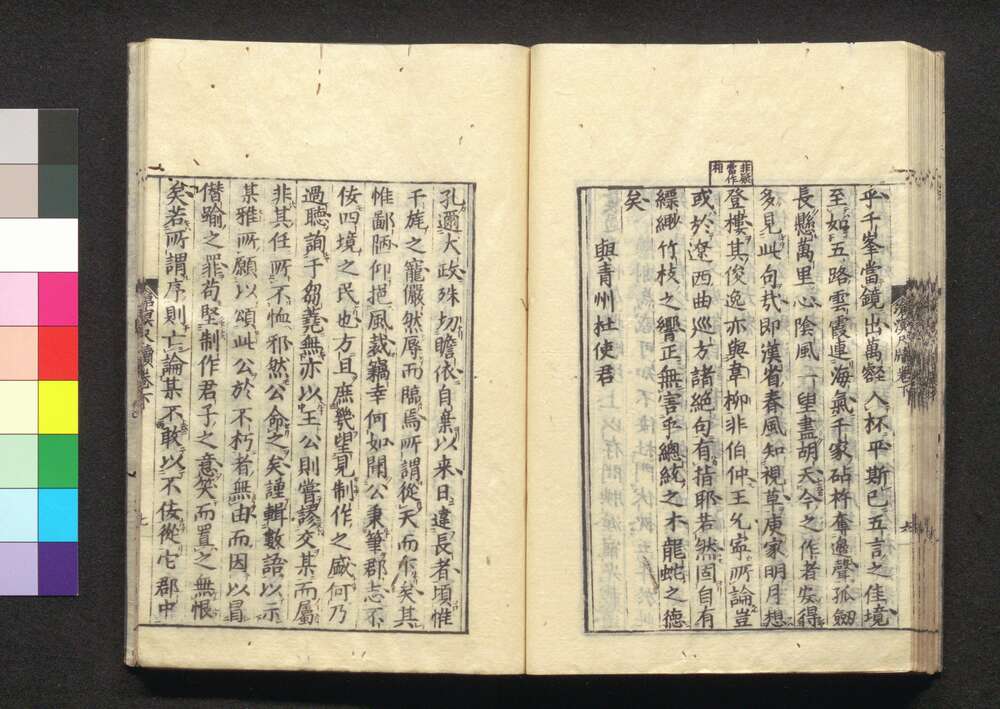 乎千峯當鏡出萬壑入杯平斯已五言之佳境
至如五路雲霞連海氣千家砧杵奮邊聲孤劔
長懸萬里心陰風一望盡胡天今之作者安得
多見此句哉即漢省春風知視草庾家明月想
登樓其俊逸亦與韋柳非伯仲王允寧所論豈
或於遼西曲巡方諸絕句有指耶若然固自有
縹緲竹枝之響正無害乎總統之木龍蛇之德
矣
與青州杜使君
非疑當作相
滄溟尺牘卷下
孔邇大政殊切瞻依自棄以來日違長者頃惟
干旄之寵儼然辱而臨焉所謂從天而下矣其
惟鄙陋仰挹風裁竊幸何如聞公秉筆郡志不
佞四境之民也方且庶幾望見制作之盛何乃
過聽詢于芻蕘無亦以王公則嘗謬交某而屬
非其任所不恤邪然公命之矣謹輯數語以示
某雅所願以頌此公於不朽者無由而因以冒
僭踰之罪苟堅制作君子之意笑而置之無恨
矣若所謂序則亡論某不敢以不佞從它郡中
滄溟尺牘卷下
七